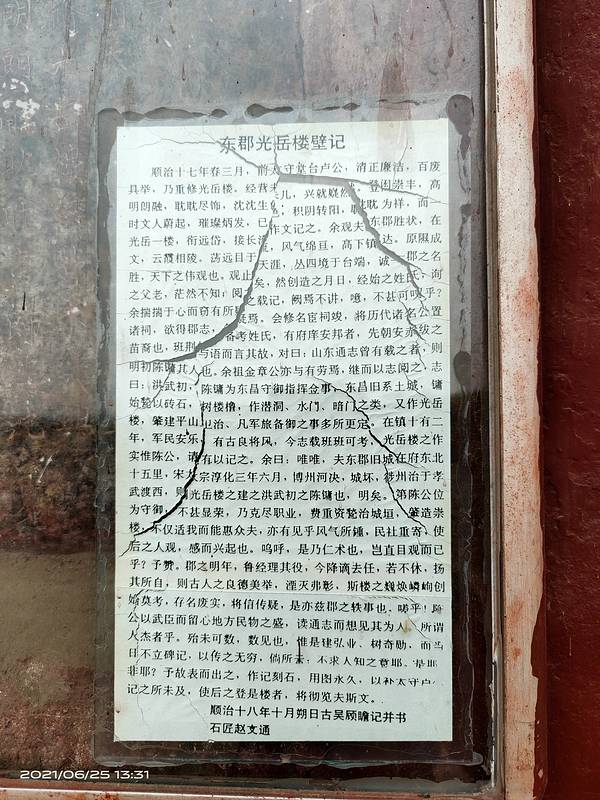 东郡光岳楼壁记
顺治十七年春三月，前太守堂台卢公，清正廉洁，百废
具举，乃重修光岳楼，经营 儿，兴就巍然，登固崇丰，高
明朗融，耽耽尽饰，沈沈生 ；积阴转阳，耽耽为祥，而一
时文人蔚起，璀璨炳发，已 作文记之。余观夫东郡胜状，在
光岳一楼，衔远岱，接长 ，风气绵亘，高下镇达。原隰成
文，云霞相陵。荡远目于天涯，丛四境于台端，诚一郡之名
胜，天下之伟观也。观止矣，然创造之月日，经始之姓氏，询
之父老，茫然不知；阅 之载记，阙焉不讲，噫，不甚可叹乎？
余揣揣于心而窃有所疑焉。会修名宦祠竣，将历代诸名公置
诸祠，欲得郡志， 备考姓氏，有府庠安邦者，先朝安 绂之
苗裔也，班荆与语而言其故，对曰：山东通志曾有载之者，则
明初陈镛其人也。余祖金章公亦与有劳焉，继而以志阅之，志
曰：洪武初，陈镛为东昌守御指挥佥事，东昌旧系土城，镛
始甃以砖石，树楼橹，作潜洞、水门、暗门之类，又作光岳
楼，肇建平山卫治、凡军旅备御之事多所更定。在镇十有二
年，军民安乐，有古良将风，今志载班班可考，光岳楼之作
实惟陈公，请有以记之。余曰：唯唯，夫东郡旧城在府东北
十五里，宋太宗淳化三年六月，博州河决，城坏，徙州治于孝
武渡西，则光岳楼之建之洪武初之陈镛也，明矣。第陈公位
为守御，不甚显荣，乃克尽职业，费重资甃治城垣，肇造崇
楼，不仅适我而能惠众夫，亦有见乎风气所锺，民社重寄，使
后之人观，感而兴起也。呜呼，是乃仁术也，岂直目观而已
乎？予赞。郡之明年，鲁经理其役，今降谪去任，若不休，扬
其所自，则古人之良德美举，湮灭弗彰，斯楼之巍焕嶙峋创
始莫考，存名废实，将信传疑，是亦兹郡之轶事也。嗟乎！陈
公以武臣而留心地方民物之盛，读通志而想见其为人，所谓
人杰者乎。殆未可数，数见也，惟是建弘业、树奇勋，而当
日不立碑记，以传之无穷，倘所 ，不求人知之意耶、是耶
非耶？予故表而出之，作记刻石，用图永久，以补太守卢
记之所未及，使后之登是楼者，将彻览夫斯文。
顺治十八年十月朔日古吴顾瞻记并书
石匠赵文通
2021/06/25 13:31